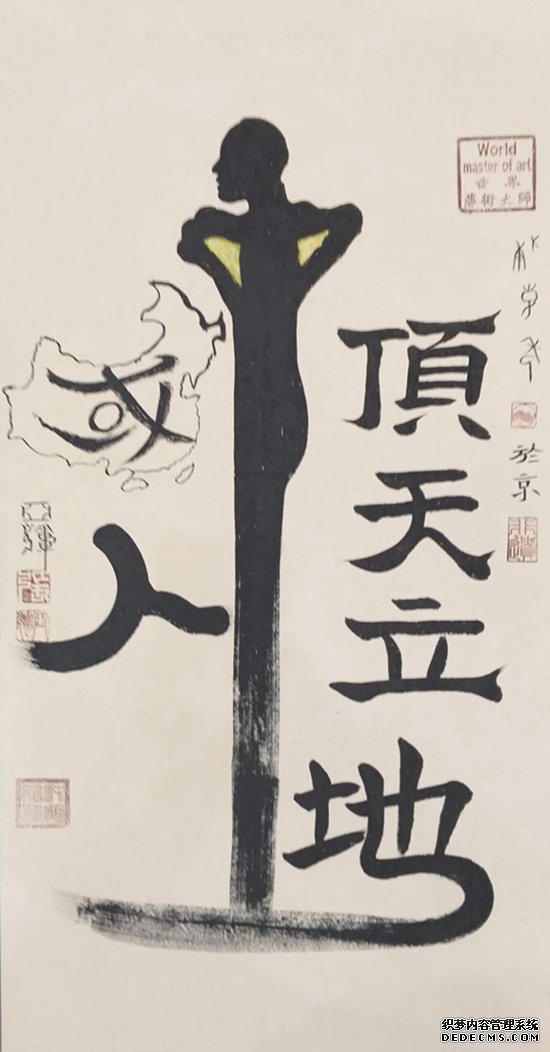 World
master of art
世界
藝術大師
於京
非遺
頂
天
立
地
國
人
织梦内容管理系统
DEDECMS.COM